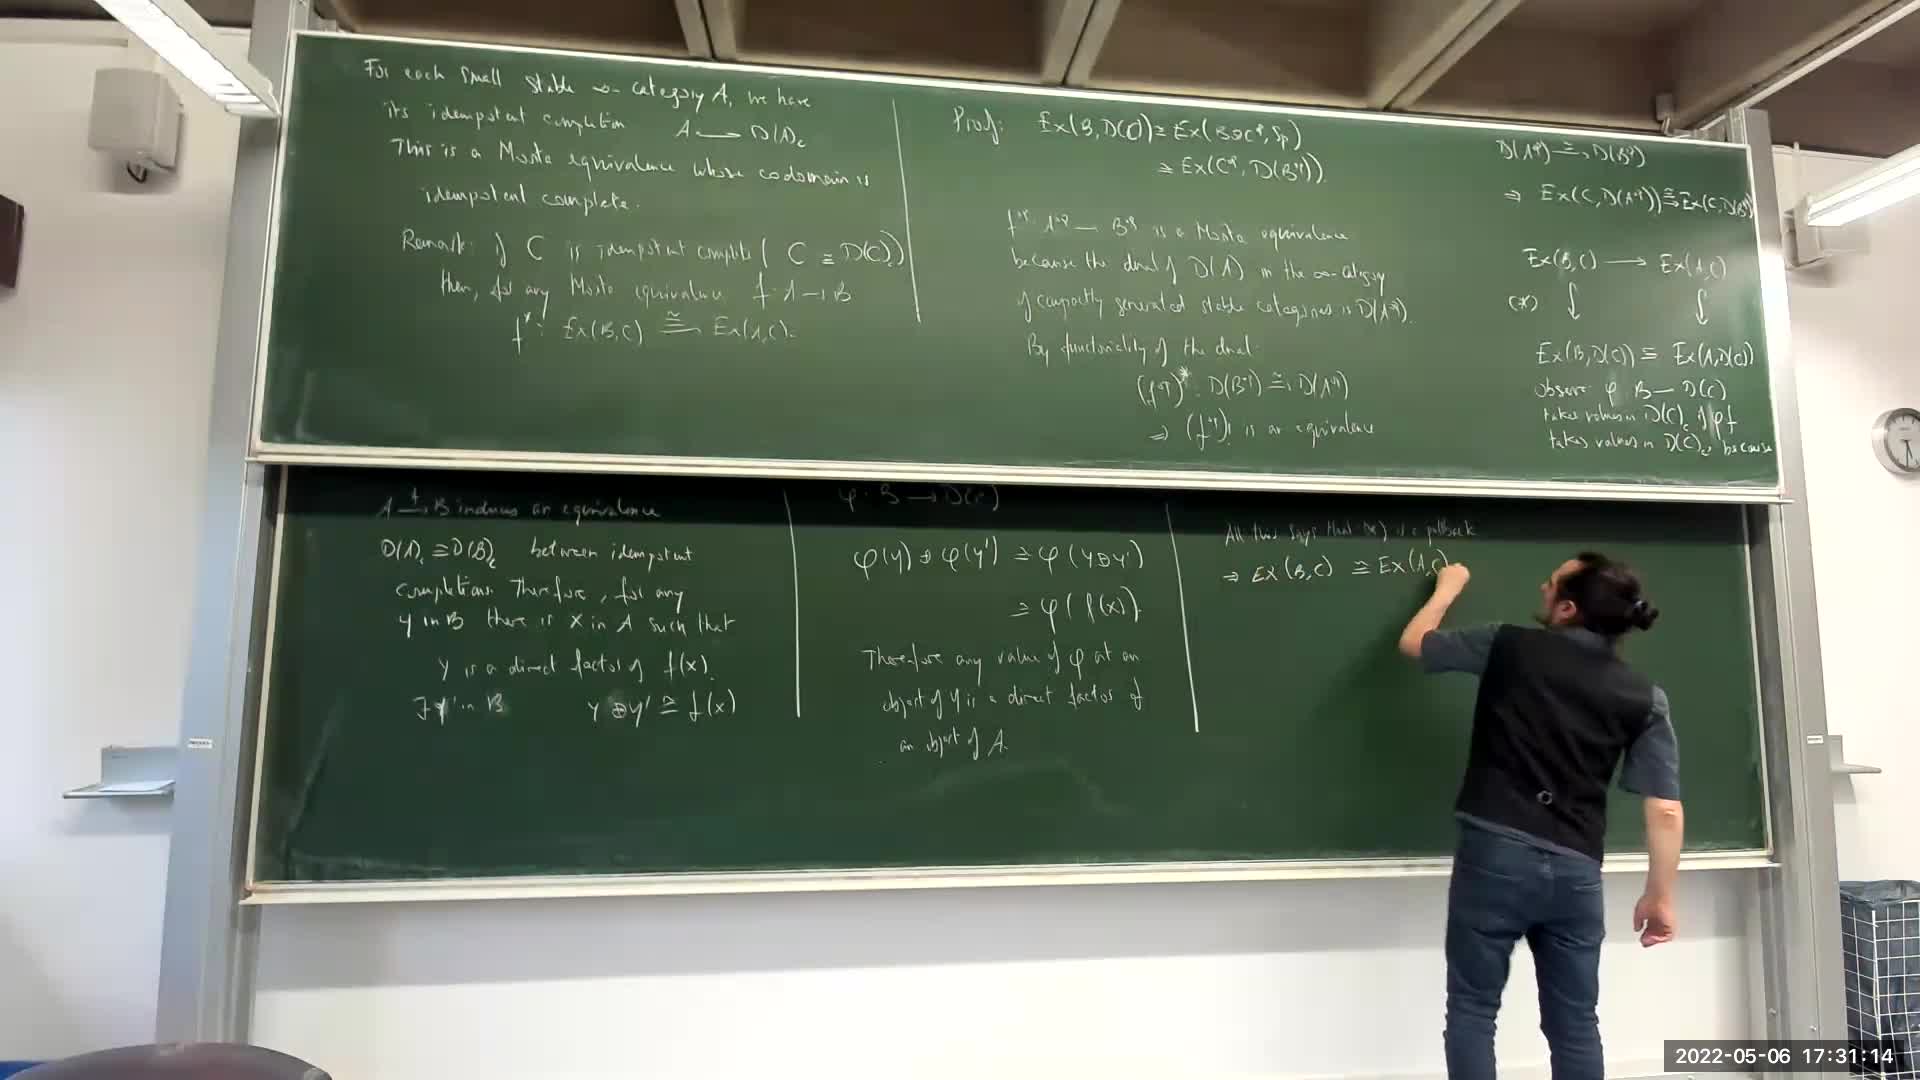 For each small stable ∞-category A, we have
its idempotent completion A → D(A)_c
This is a Morita equivalence whose codomain is
idempotent complete.
Remark: if C is idempotent complete ( C ≅ D(C)_c )
then, for any Morita equivalence f: A → B
f*: Ex(B,C) ≅→ Ex(A,C).
Proof: Ex(B,D(C)) ≅ Ex(B⊗C^op, Sp)
≅ Ex(C^op, D(B^op)).
f^op: A^op → B^op is a Morita equivalence
because the dual of D(A) in the ∞-category
of compactly generated stable categories is D(A^op).
By functoriality of the dual:
(f^op)*: D(B^op) ≅→ D(A^op)
⇒ (f^op)_! is an equivalence
D(A^op) ≅→ D(B^op)
⇒ Ex(C,D(A^op)) ≅→ Ex(C,D(B^op))
Ex(B,C) → Ex(A,C)
(*)
Ex(B,D(C)) ≅ Ex(A,D(C))
observe φ: B → D(C)
takes values in D(C)_c if φf
takes values in D(C)_c, because
A →f B induces an equivalence
D(A)_c ≅ D(B)_c between idempotent
completions. Therefore, for any
y in B there is x in A such that
y is a direct factor of f(x).
∃ y' in B y ⊕ y' ≅ f(x)
φ: B → D(C)
φ(y) ⊕ φ(y') ≅ φ(y⊕y')
≅ φ(f(x)).
Therefore any value of φ at an
object of Y is a direct factor of
an object of A.
All this says that (*) is a pullback
⇒ Ex(B,C) ≅ Ex(A,C)
2022-05-06 17:31:14